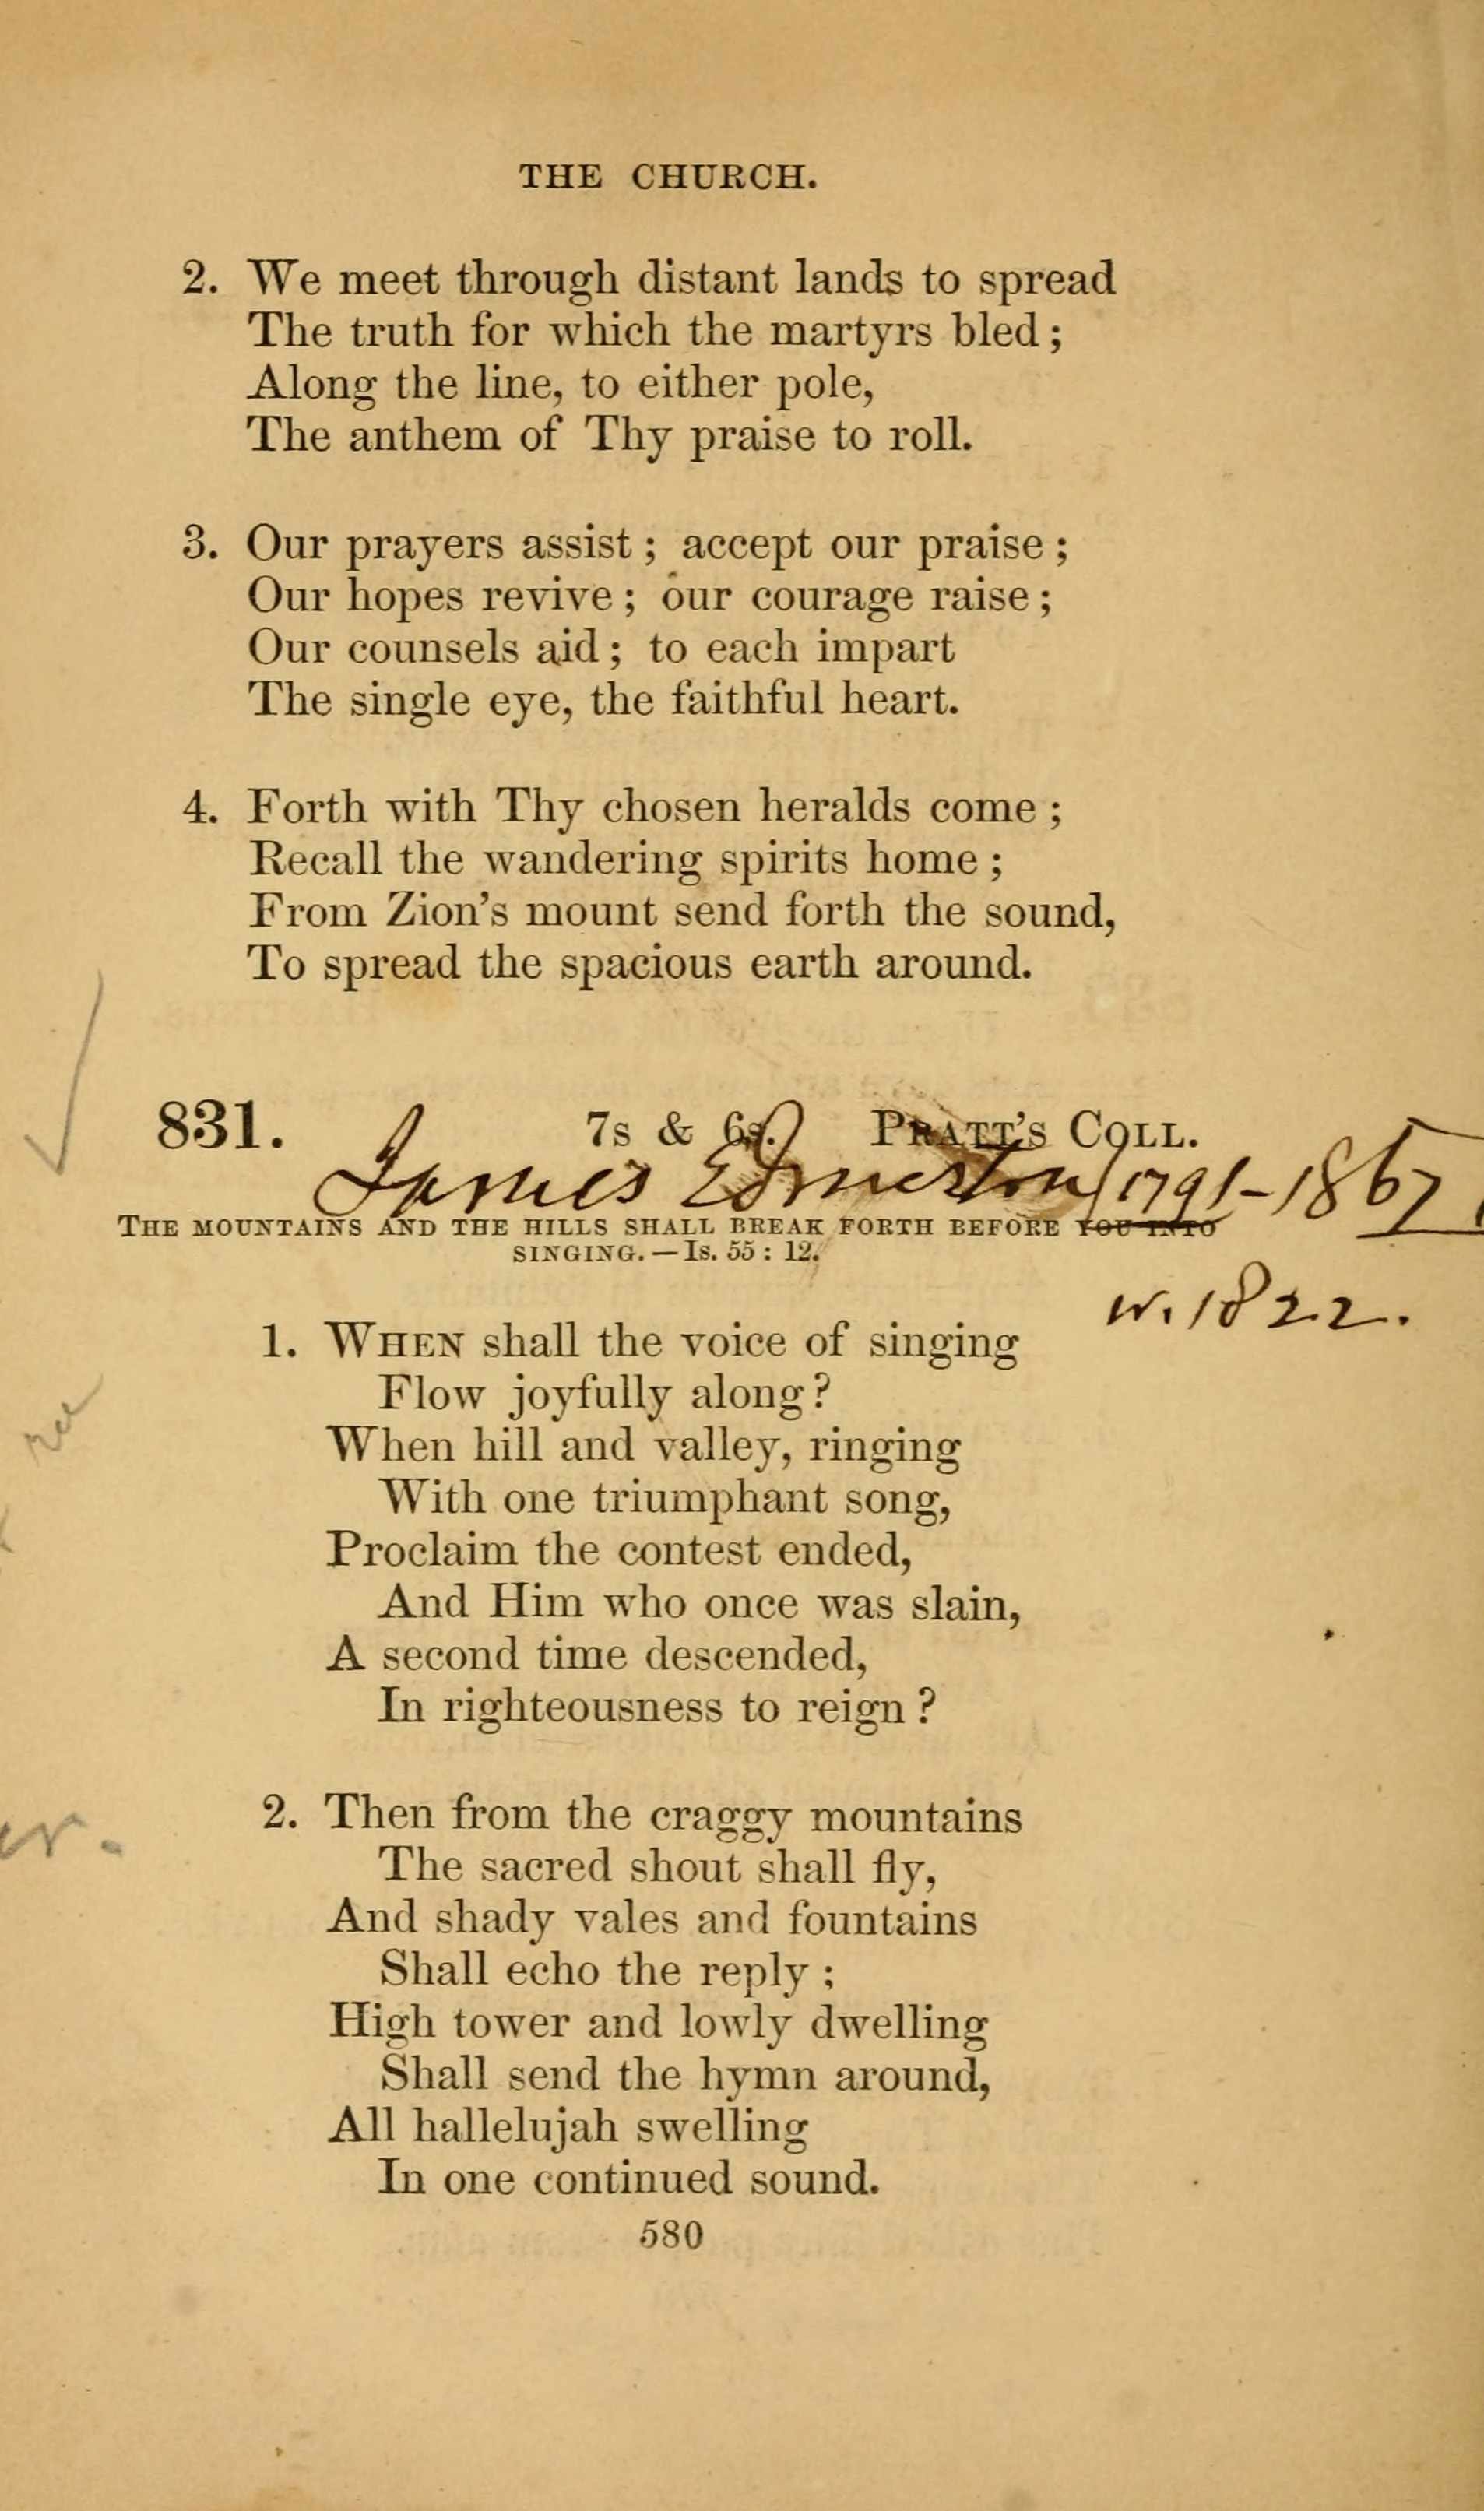 THE CHURCH.
2. We meet through distant lands to spread
The truth for which the martyrs bled;
Along the line, to either pole,
The anthem of Thy praise to roll.
3. Our prayers assist; accept our praise;
Our hopes revive; our courage raise;
Our counsels aid; to each impart
The single eye, the faithful heart.
4. Forth with Thy chosen heralds come;
Recall the wandering spirits home;
From Zion's mount send forth the sound,
To spread the spacious earth around.
831. 7s & 6s. PRATT'S COLL.
James Edmeston 1791-1867
THE MOUNTAINS AND THE HILLS SHALL BREAK FORTH BEFORE YOU INTO
SINGING.—IS. 55: 12.
w. 1822.
1. WHEN shall the voice of singing
Flow joyfully along?
When hill and valley, ringing
With one triumphant song,
Proclaim the contest ended,
And Him who once was slain,
A second time descended,
In righteousness to reign?
2. Then from the craggy mountains
The sacred shout shall fly,
And shady vales and fountains
Shall echo the reply;
High tower and lowly dwelling
Shall send the hymn around,
All hallelujah swelling
In one continued sound.
580